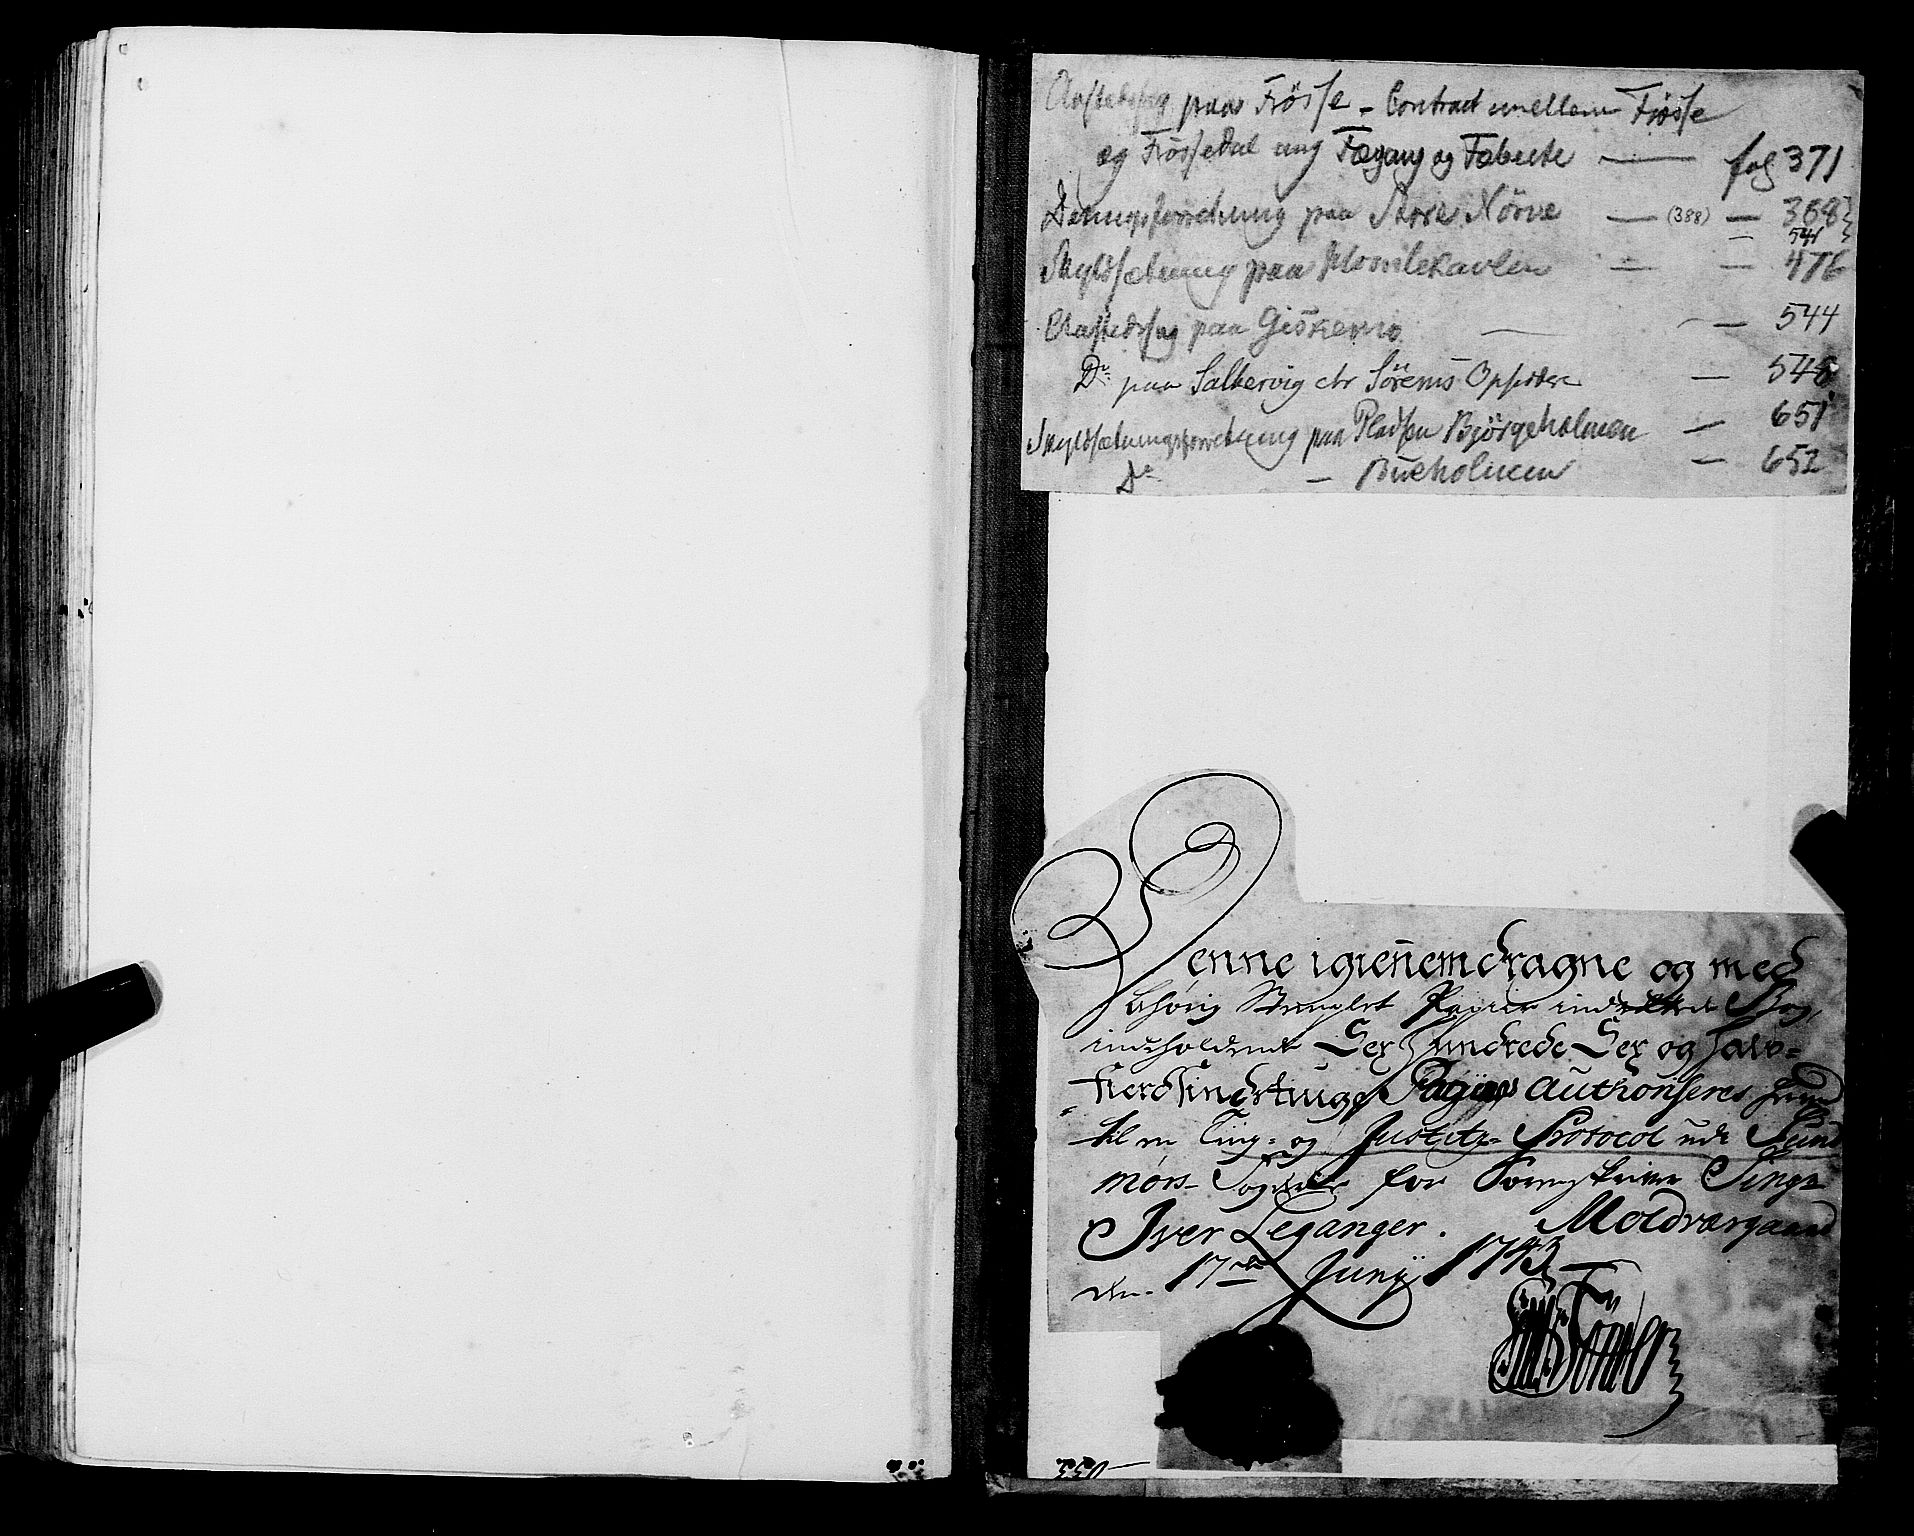 Aastedssag paa Frøsse - Contract mellem Frøsse
og Frøssedal ang Fægang og Fæbeite — fol 371
Delingsforretning paa Store Nørve — (388) — 368
541
Skyldsætning paa — — 476
Aastedssag paa Giskemo — — 544
Do paa Salhervig etr Sørems Opsidder — 548
Skyldsætningsforretning paa Pladsen Bjørgeholmen — 651
Do — Bueholmen — 652
Denne igienemdragne og med
behørig Stemplet Papier indrettede Bog,
indeholdende Sex Hundrede Sex og Halv-
fierdsindstiuge Pagina Authoriseres herved
til en Ting- og Justitz- Protocol udi Sund
mørs- Fogderie for Sorenskriver Sing
Iver Leganger. Moldværgaard
den 17de Junÿ 1743
550 —